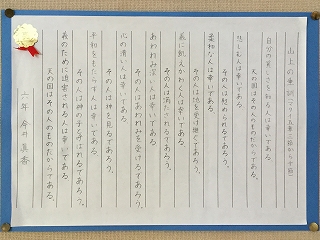 山上の垂訓（マタイ五章三節から十節）
自分の貧しさを知る人は幸いである
天の国はその人のものだからである。
悲しむ人は幸いである
その人は慰められるであろう。
柔和な人は幸いである
その人は地を受け継ぐであろう。
義に飢えかわく人は幸いである。
その人は満たされるであろう。
あわれみ深い人は幸いである
その人はあわれみを受けるであろう。
心の清い人は幸いである
その人は神を見るであろう。
平和をもたらす人は幸いである
その人は神の子と呼ばれるであろう。
義のために迫害される人は幸いである
天の国はその人のものだからである。
六年